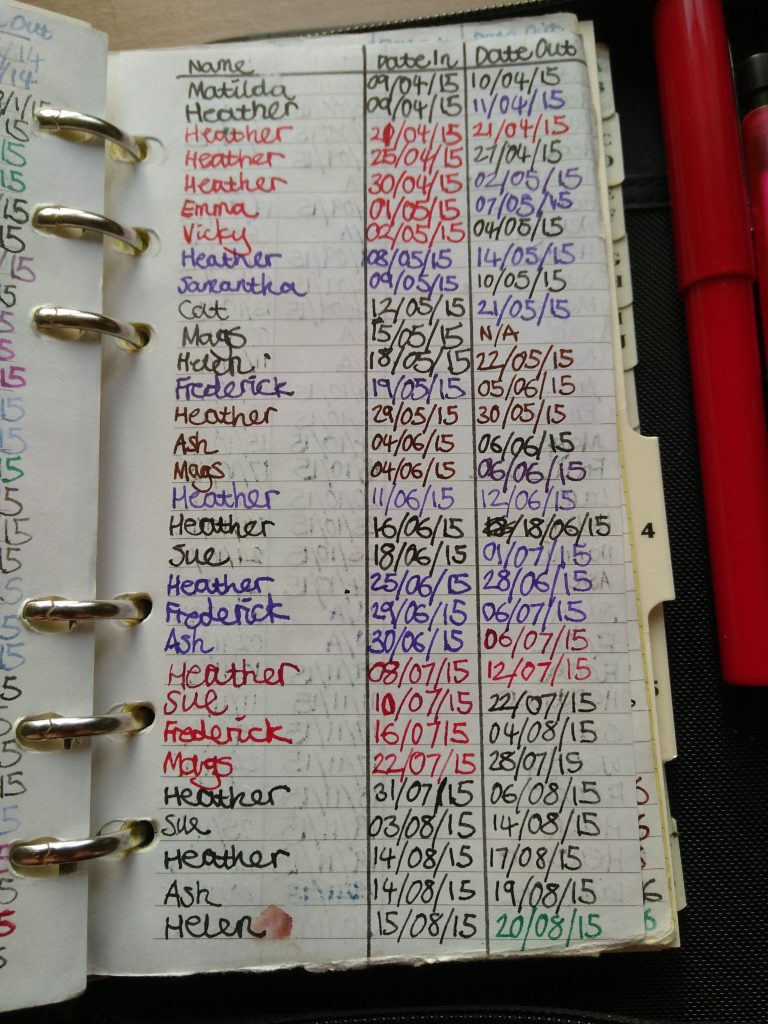 Name Date In Date Out
Matilda 09/04/15 10/04/15
Heather 09/04/15 11/04/15
Heather 20/04/15 21/04/15
Heather 25/04/15 27/04/15
Heather 30/04/15 02/05/15
Emma 01/05/15 07/05/15
Vicky 02/05/15 04/05/15
Heather 08/05/15 14/05/15
Samantha 09/05/15 10/05/15
Cat 12/05/15 21/05/15
Mags 15/05/15 N/A
Helen 18/05/15 22/05/15
Frederick 19/05/15 05/06/15
Heather 29/05/15 30/05/15
Ash 04/06/15 06/06/15
Mags 04/06/15 06/06/15
Heather 11/06/15 12/06/15
Heather 16/06/15 18/06/15
4
Sue 18/06/15 01/07/15
Heather 25/06/15 28/06/15
Frederick 29/06/15 06/07/15
Ash 30/06/15 06/07/15
Heather 08/07/15 12/07/15
Sue 10/07/15 22/07/15
Frederick 16/07/15 04/08/15
Mags 22/07/15 28/07/15
Heather 31/07/15 06/08/15
Sue 03/08/15 14/08/15
Heather 14/08/15 17/08/15
Ash 14/08/15 19/08/15
Helen 15/08/15 20/08/15